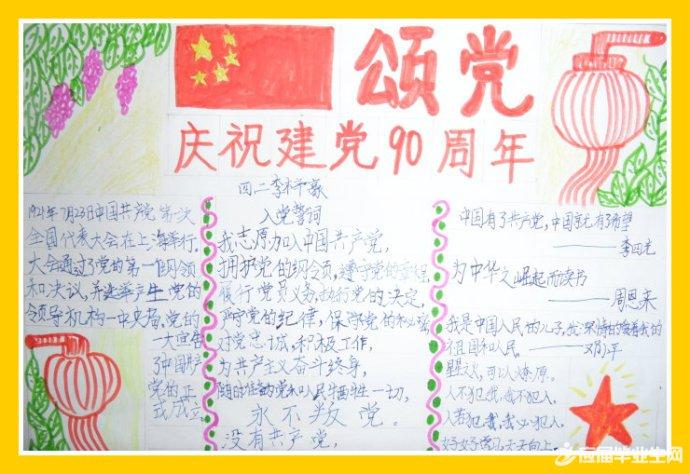 颂党
庆祝建党90周年
四二李梓豪
1921年7月23日中国共产党第一次
全国代表大会在上海举行,
大会通过了党的第一个纲领
和决议,并选举产生党的
领导机构—中央局,党的
一大宣告
了中国共产
党的正
式成立
入党誓词
我志愿加入中国共产党,
拥护党的纲领,遵守党的章程,
履行党员义务,执行党的决定,
严守党的纪律,保守党的秘密
对党忠诚,积极工作,
为共产主义奋斗终身,
随时准备为党和人民牺牲一切,
永不叛党。
没有共产党,
中国有了共产党,中国就尤有了希望
——李四光
为中华之崛起而读书
——周恩来
我是中国人民的儿子,我深情的爱着我的
祖国和人民。——邓小平
星星之火,可以燎原。
人不犯我,我不犯人,
人若犯我,我必犯人。
好好学习,天天向上。
应届毕业生网